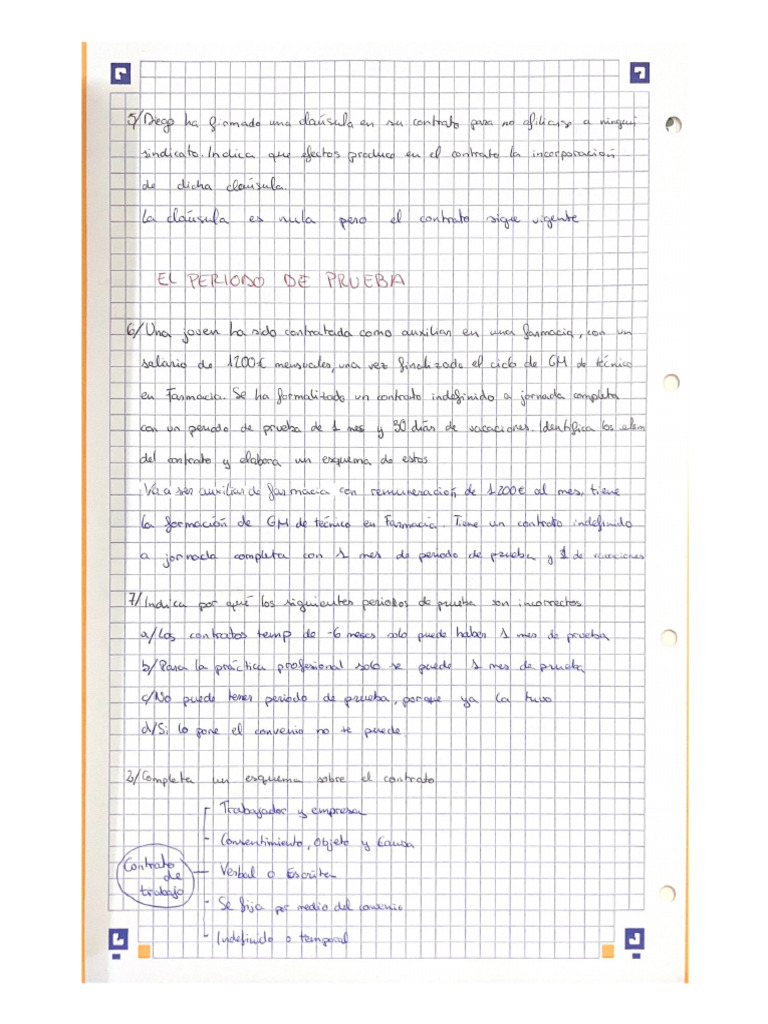 5/Diego ha firmado una claúsula en su contrato para no afiliarse a ningun
sindicato. Indica que efectos produce en el contrato la incorporación
de dicha claúsula.
La claúsula es nula pero el contrato sigue vigente
EL PERIODO DE PRUEBA
6/Una joven ha sido contratada como auxiliar en una farmacia, con un
salario de 1200€ mensuales, una vez finalizada el ciclo de GM de técnico
en Farmacia. Se ha formalitado un contrato indefinido a jornada completa
con un periodo de prueba de 1 mes y 30 diás de vacaciones. Identifica los elem
del contrato y elabora un esquema de estos
Va a ser auxiliar de farmacia con remuneración de 1200€ al mes, tiene
la formación de GM de técnico en Farmacia. Tiene un contrato indefinido
a jornada completa con 1 mes de periodo de prueba y 1 de vacaciones
7/Indica por qué los siguientes periodos de prueba son incorrectos
a/Los contratos temp de -6 meses solo puede haber 1 mes de prueba
b/Para la práctica profesional solo se puede 1 mes de prueba
c/No puede tener periodo de prueba, porque ya la tuvo
d/Si lo pone el convenio no te puede
2/Completa un esquema sobre el contrato
Contrato de trabajo
- Trabajador y empresa
- Consentimiento, Objeto y Causa
- Verbal o Escrita
- Se fija por medio del convenio
- Indefinido o temporal